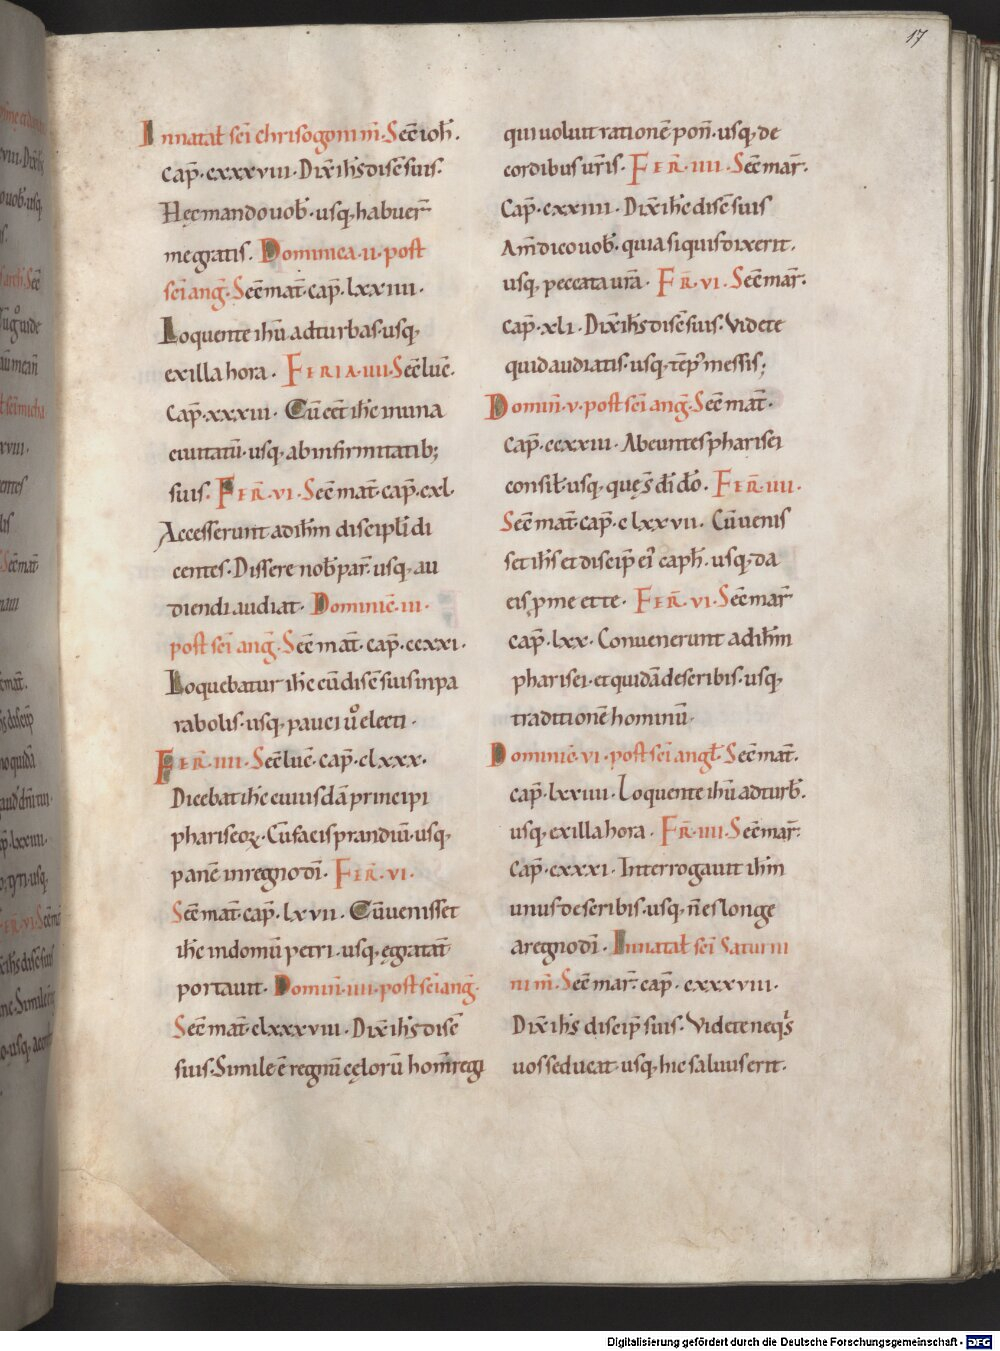 17
Innatał sc̄i chrisogoni m̄. Sec̄ ioh̄.
Cap̄. cxxxviii. Dix̄ ih̄s disc̄ suis.
Hęc mando uob̄. usq, habuer̄
me gratis. Dominica. ii. post
sc̄i ang̃. Sec̄ mat̄. cap̄. lxxiiii.
Loquente ih̄u ad turbas. usq,
ex illa hora. FERIA. IIII. Sec̄ luc̄.
Cap̄. xxxiii. Cū eēt ih̄c in una
ciuitatū. usq, ab infirmitatib;
suis. FER̄. VI. Sec̄ mat̄. cap̄. cxl.
Accesserunt ad ih̄m discipłi di
centes. Dissere nob̄ par̄. usq, au
diendi audiat. Dominic̄. iii.
post sc̄i ang̃. Sec̄ mat̄. cap̄. ccxxi.
Loquebatur ih̄c cū disc̄ suis in pa
rabolis. usq, pauci ůo electi.
FER̄. IIII. Sec̄ luc̄. cap̄. clxxx.
Dicebat ih̄c cuiusdā principi
phariseoꝝ. Cū facis prandiū. usq,
panē in regno dī. FER̄. VI.
Sec̄ mat̄. cap̄. lxvii. Cū uenisset
ih̄c in domū petri. usq, ęgrotat̄
portauit. Domin̄. iiii. post sc̄i ang̃.
Sec̄ mat̄. clxxxviii. Dix̄ ih̄s disc̄
suis. Simile ē regnū cęlorū hom̄ regi
qui uoluit rationē pon̄. usq, de
cordibus ur̄is. FER̄. IIII. Sec̄ mar̄.
Cap̄. cxxiiii. Dix̄ ih̄c disc̄ suis
Am̄ dico uob̄. quia si quis dixerit.
usq, peccata ur̄a. FR̄. VI. Sec̄ mar̄.
cap̄. xli. Dix̄ ih̄s disc̄ suis. Videte
quid audiatis. usq, tēp᾽ messis;
Domin̄. v. post sc̄i ang̃. Sec̄ mat̄.
cap̄. ccxxiii. Abeuntes pharisei
consił. usq, quę s̄ dī dō. FER̄. IIII.
Sec̄ mat̄. cap̄. clxxvii. Cū uenis
set ih̄s et discip̄ ei᾽ caph̄. usq, da
eis ꝓ me et te. FER̄. VI. Sec̄ mar̄
cap̄. lxx. Conuenerunt ad ih̄m
pharisei. et quidā de scribis. usq,
traditionē hominū.
Dominic̄. vi. post sc̄i angł. Sec̄ mat̄.
cap̄. lxxiiii. Loquente ih̄u ad turb̄.
usq, ex illa hora. FR̄. IIII. Sec̄ mar̄.
Cap̄. cxxxi. Interrogauit ih̄m
unus de scribis. usq, n̄ es longe
a regno dī. Innatał sc̄i Saturni
ni m̄. Sec̄ mar̄. cap̄. cxxxviii.
Dix̄ ih̄s discip̄ suis. Videte ne qⁱs
uos seducat. usq, hic saluus erit.
Digitalisierung gefördert durch die Deutsche Forschungsgemeinschaft - DFG